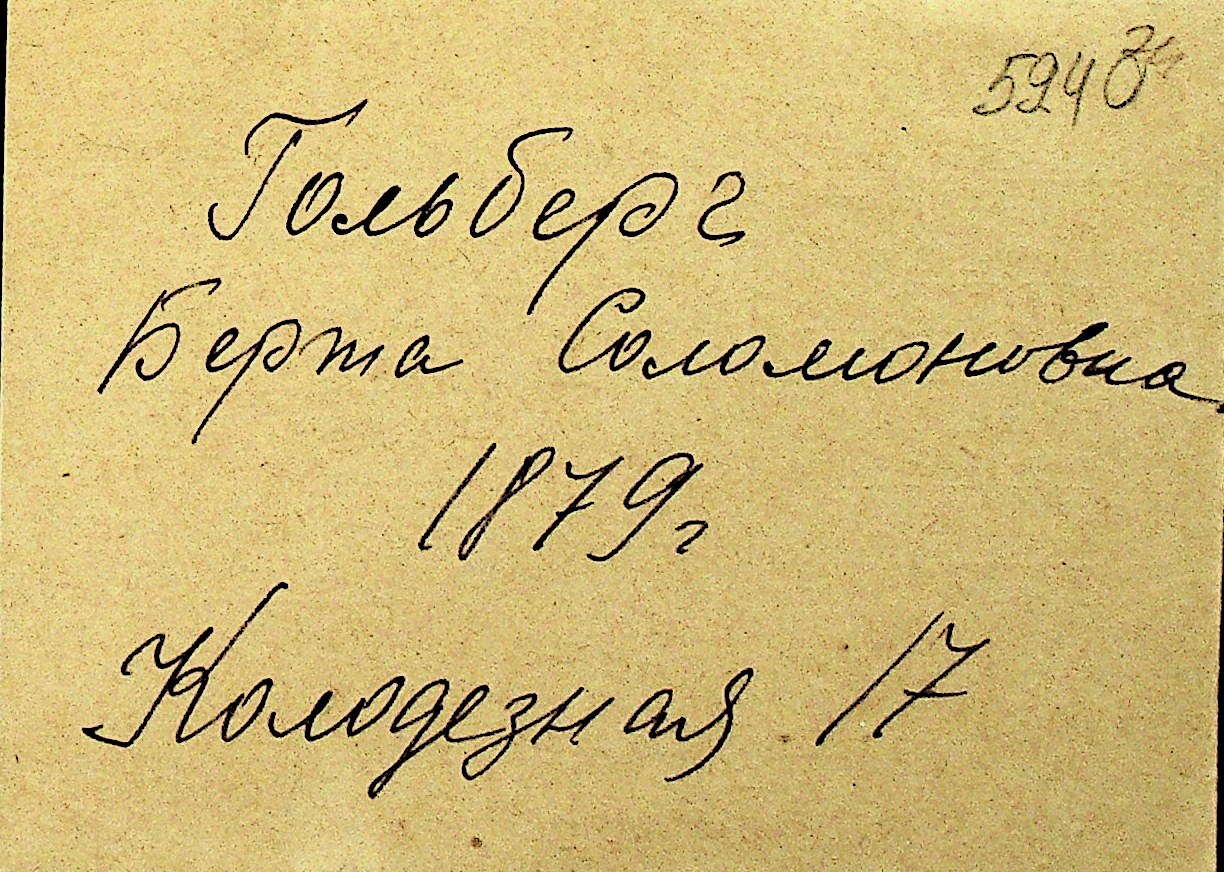 5940
Гольберг
Берта Соломоновна
1879г
Колодезная 17